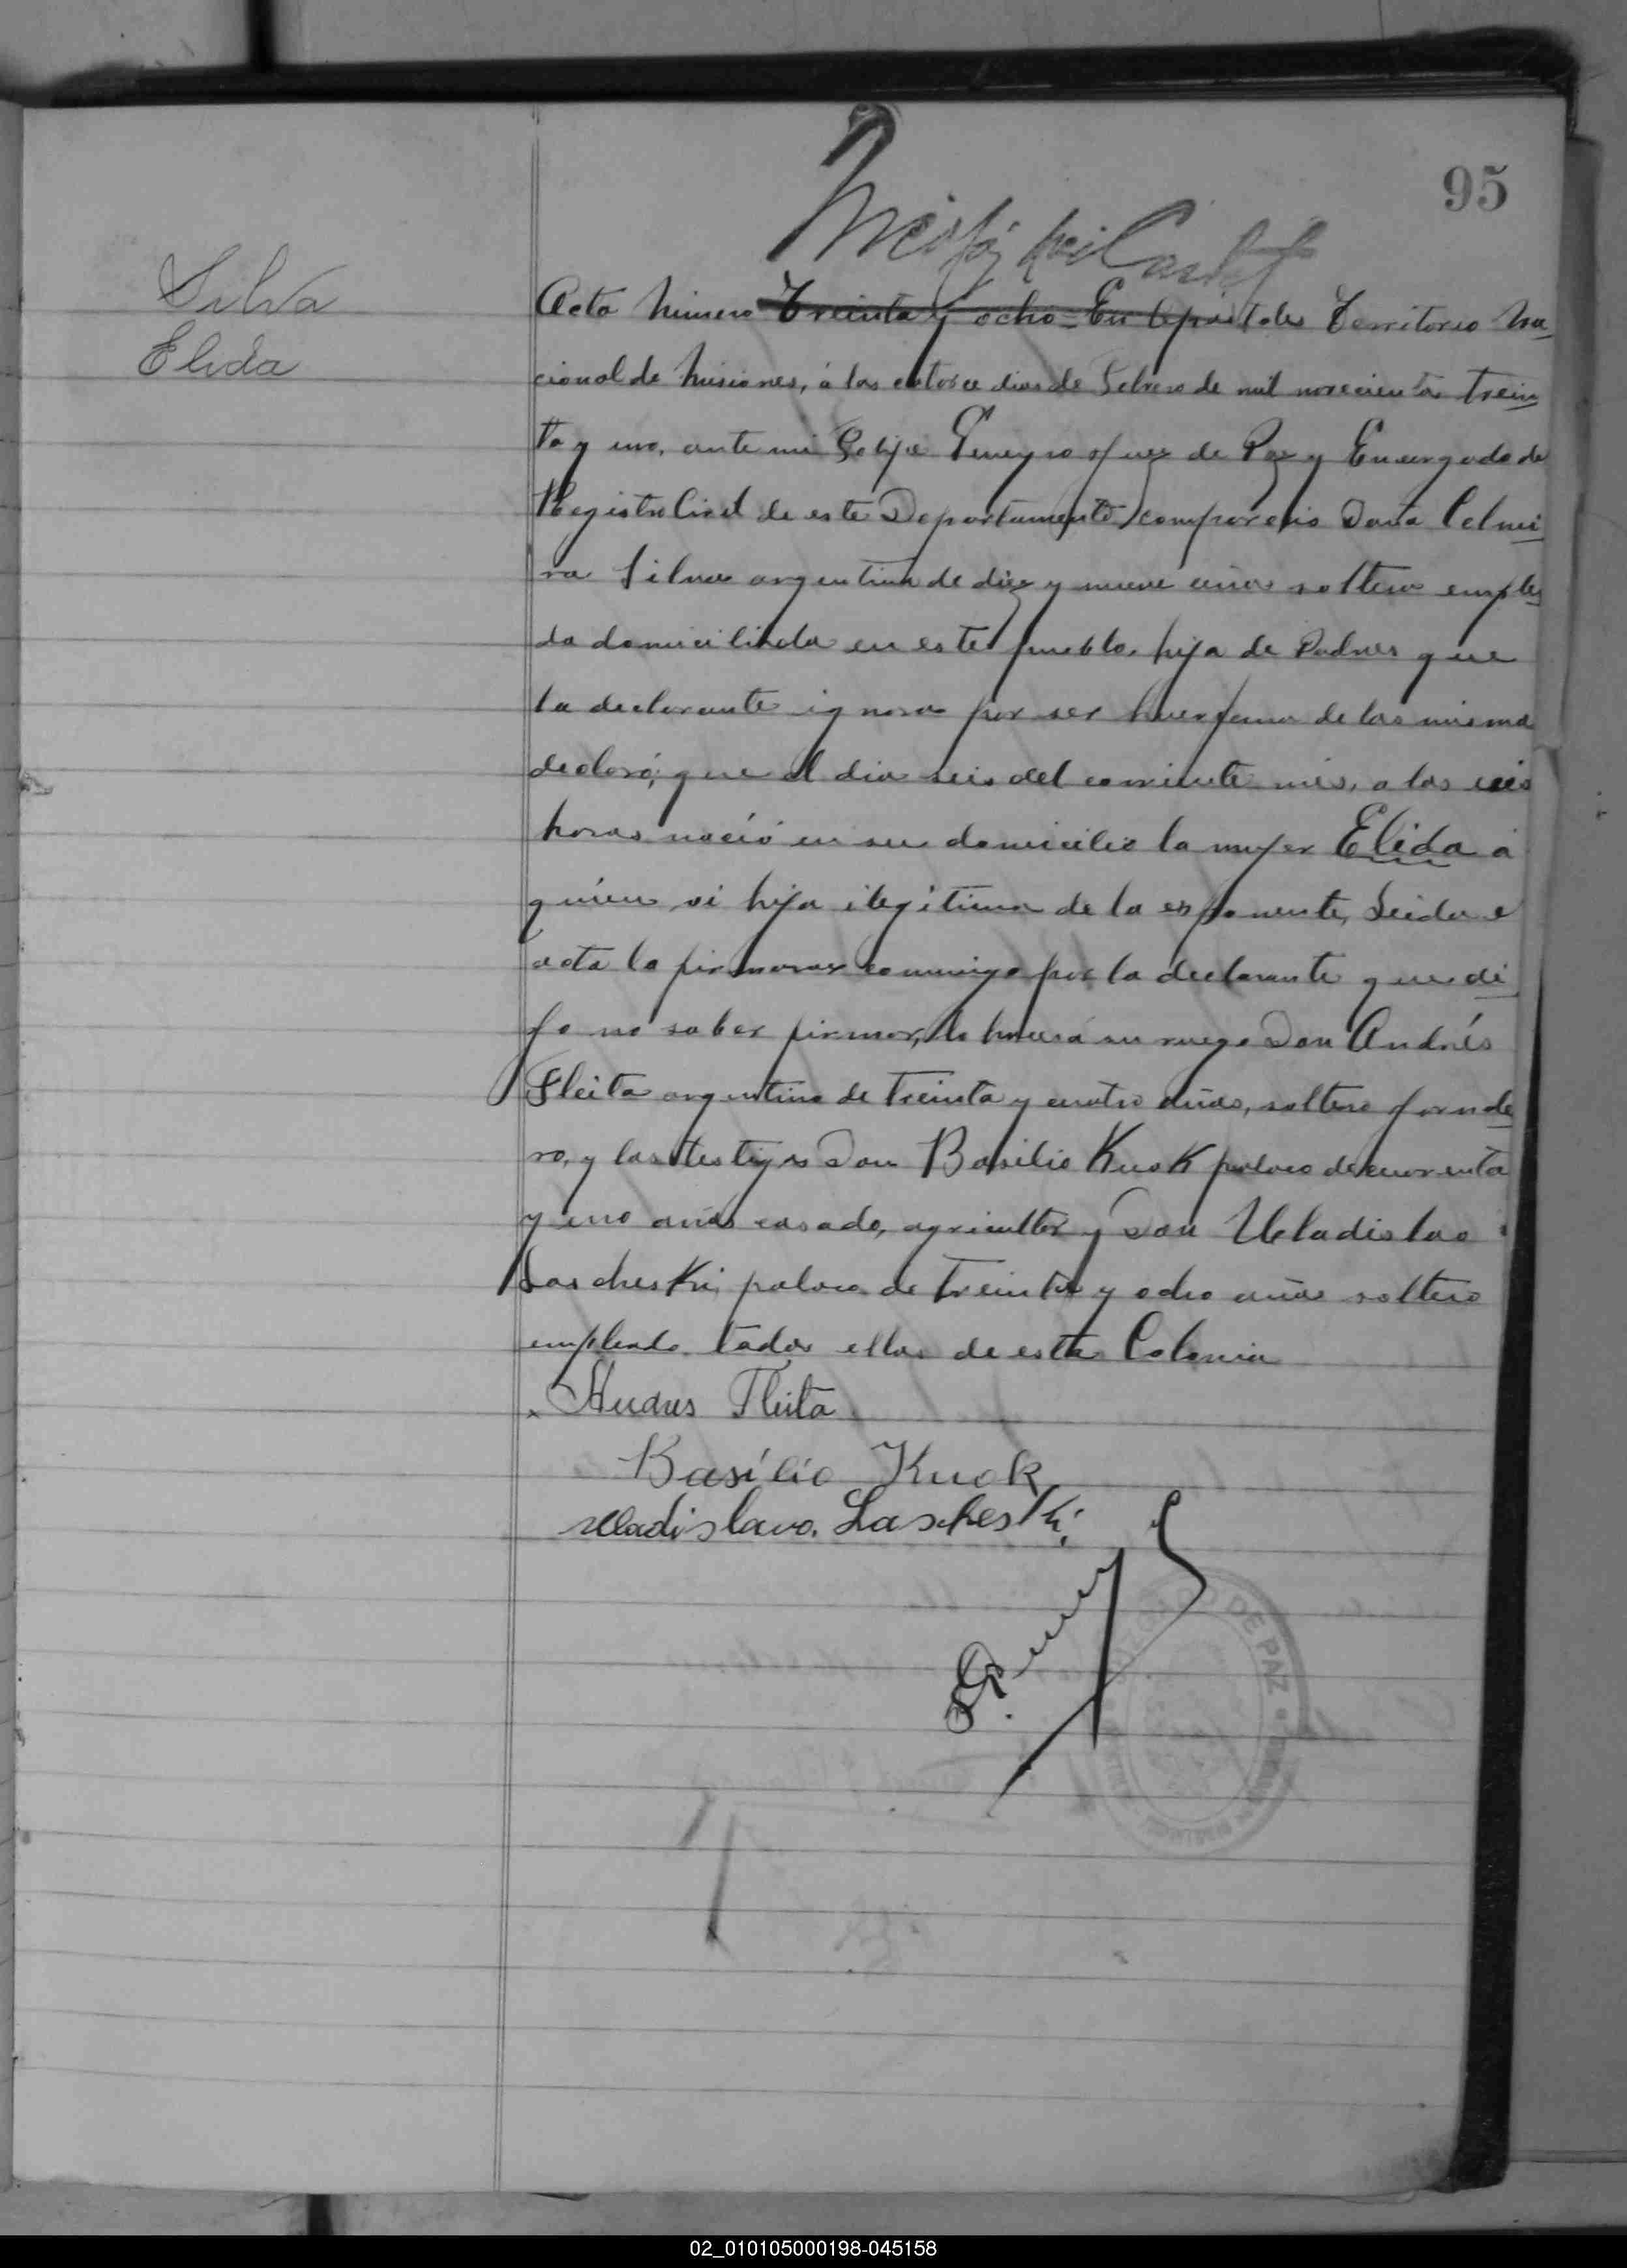 95
Silva
Elida
Acta Número Treinta y ocho = En Apóstoles Territorio Na
cional de Misiones, á los catorce dias de Febrero de mil novecientos trein
ta y uno, ante mi Juez de Paz y Encargado de
Registro Civil de este Departamento, comparecio Doña Celmi
ra Silva argentina de diez y nueve años soltera emplea
da domiciliada en este pueblo, hija de Padres que
la declarante ignora por ser huerfana de los misma
declaró; que el dia seis del corriente mes, a las seis
horas nació en su domicilio la mujer Elida á
quien vi hija ilegitima de la exponente, Leida el
acta la firmaron conmigo por la declarante que di
jo no saber firmar, lo hace á su ruego Don Andrés
Fleita argentino de treinta y cuatro años, soltero jornale
ro, y los testigos Don Basilio Kuok polaco de cuarenta
y uno años casado, agricultor y Don Uladislao
Lascheski, polaco de treinta y ocho años soltero
empleado todos ellos de esta Colonia
Andres Fleita
Basílio Kuok
Uladislavo. Lascheski
DE PAZ
02_010105000198-045158